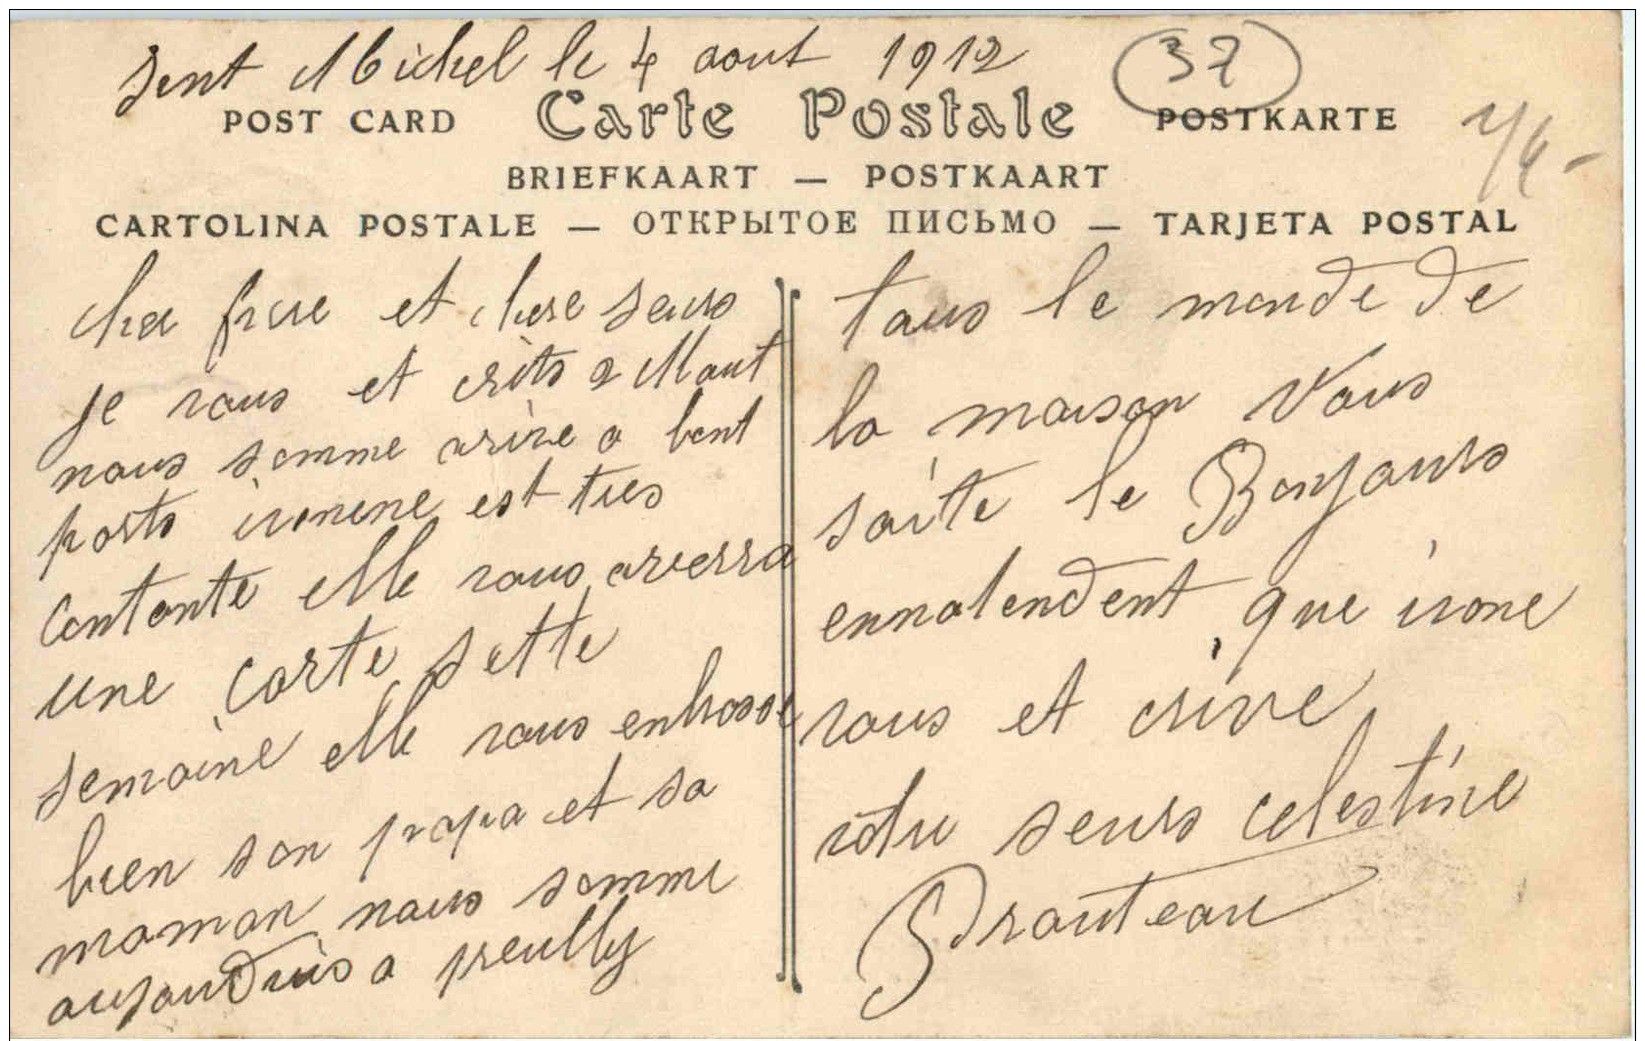 Sent Michel le 4 aout 1912
37
POST CARD Carte Postale POSTKARTE
BRIEFKAART — POSTKAART
CARTOLINA POSTALE — ОТКРЫТОЕ ПИСЬМО — TARJETA POSTAL
cher frere et chere seurs
je vous et crits 2 Maut
nous somme arive a bont
ports irenene est tres
contente elle vous averra
une carte sette
semaine elle vous enbrasse
bien son papa et sa
maman nous somme
aujourduis a preully
tous le monde de
la maison Vous
saite le Bonjours
ennatendent que irene
vous et crive
votre seurs celestine
Drauteau